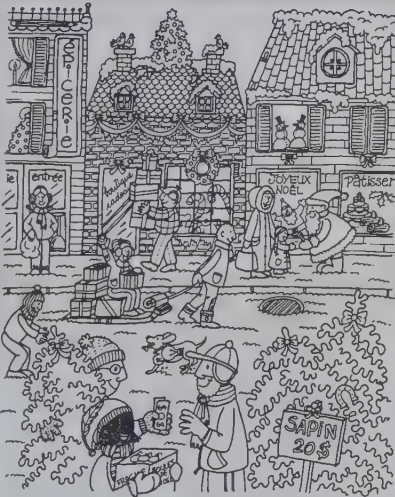 EPICERIE
entrée
boutique
cadeaux
JOYEUX
NOËL
Pâtisser
SAPIN
20$